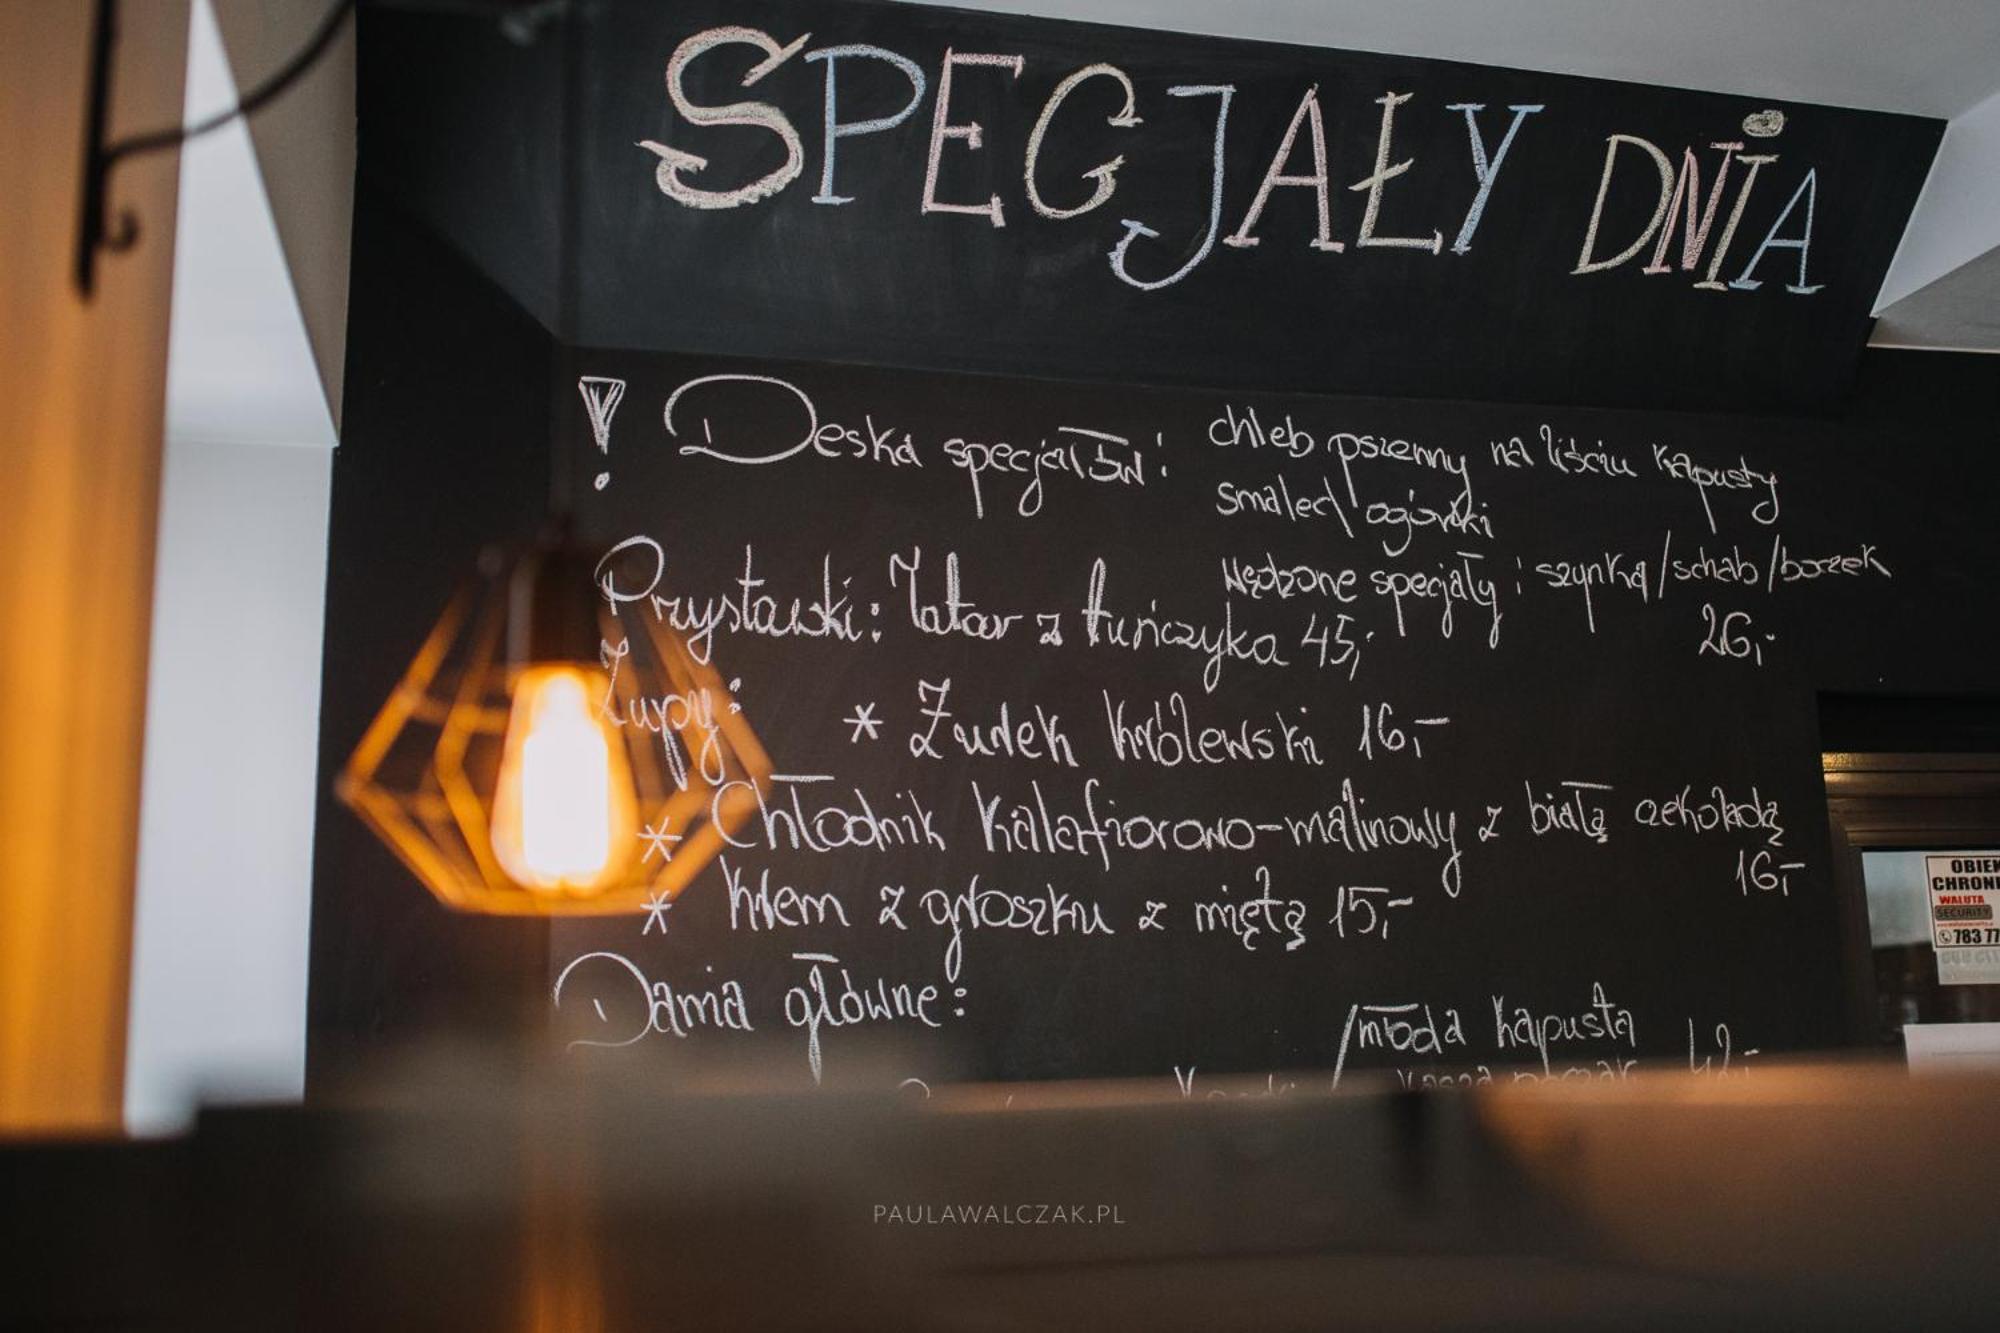 SPECJAŁY DNIA
! Deska specjałów: chleb pszenny na liściu kapusty
smalec\ ogórki
wędzone specjały: szynka/schab/boczek
26,-
Przystawki: Tatar z tuńczyka 45,-
Zupy: * Żurek Królewski 16,-
* Chłodnik Kalafiorowo-malinowy z białą czekoladą
16,-
* Krem z groszku z miętą 15,-
Dania główne:
/młoda kapusta
42,-
OBIEK
CHRONI
WALUTA
SECURITY
783 77
PAULAWALCZAK.PL